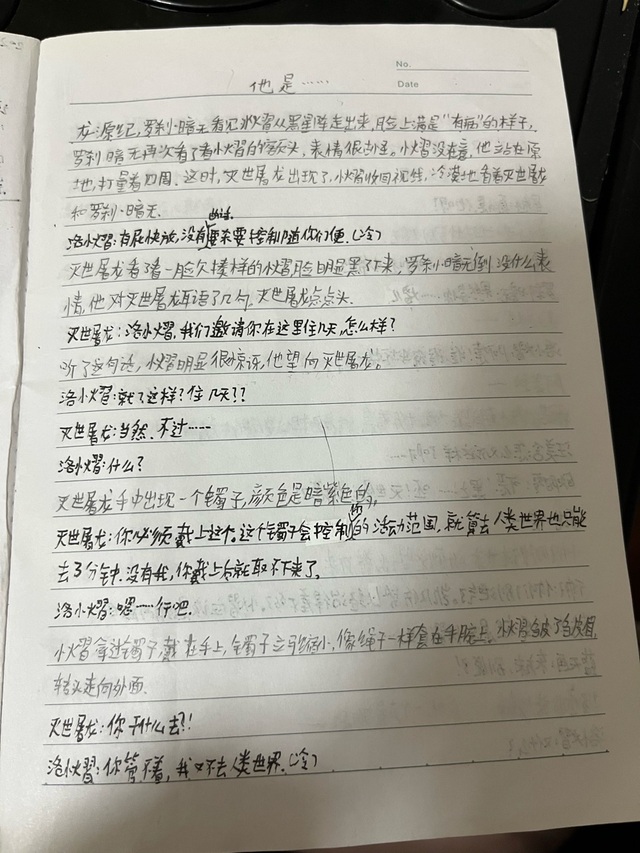 No.
他是……
Date
龙源纪,罗刹·暗无看见洛小熠从黑星阵走出来,脸上满是“有病”的样子,
罗刹·暗无再次看了看小熠的额头,表情很古怪。小熠没在意,他站在原
地,打量着四周。这时,灭世屠龙出现了,小熠收回视线,冷漠地看着灭世屠龙
和罗刹·暗无。
洛小熠:有屁快放,没有要控制随你们便。(冷)
灭世屠龙看了看一脸欠揍样的小熠脸明显黑了下来,罗刹·暗无倒没什么表
情,他对灭世屠龙耳语了几句,灭世屠龙点点头。
灭世屠龙:洛小熠,我们邀请你在这里住几天,怎么样?
听了这句话,小熠明显很惊讶,他望向灭世屠龙。
洛小熠:就了这样?住几天??
灭世屠龙:当然,不过……
洛小熠:什么?
灭世屠龙手中出现一个镯子,颜色是暗紫色的。
灭世屠龙:你必须戴上这个。这个镯子会控制你的活动范围,就算去人类世界也只能
去3分钟.没有我,你戴上后就取不下来了。
洛小熠:嗯……行吧.
小熠拿过镯子戴在手上,镯子立马缩小,像绳子一样套在手腕上。小熠皱了皱眉,
转头走向外面.
灭世屠龙:你干什么去?!
洛小熠:你管不着,我又不去人类世界.(冷)